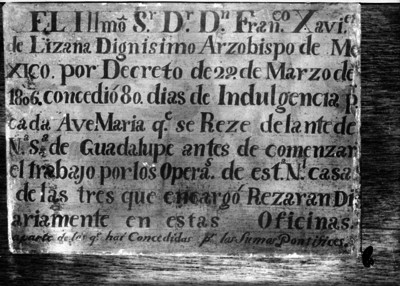 EL Illmõ Sr. Dr. Dn. Fran.co Xavi.er
de Lizana Dignisimo Arzobispo de Me
xico. por Decreto de 22 de Marzo de
1806. concedió 80. dias de Indulgencia p.r
cada Ave Maria q.e se Reze delante de
N.a S.a de Guadalupe antes de comenzar
el trabajo por los Opera.s de est.a N.l casa
de las tres que encargó Rezaran Di
ariamente en estas Oficinas.
aparte de las q.e han Concedidas p.r los Sumos Pontifices.